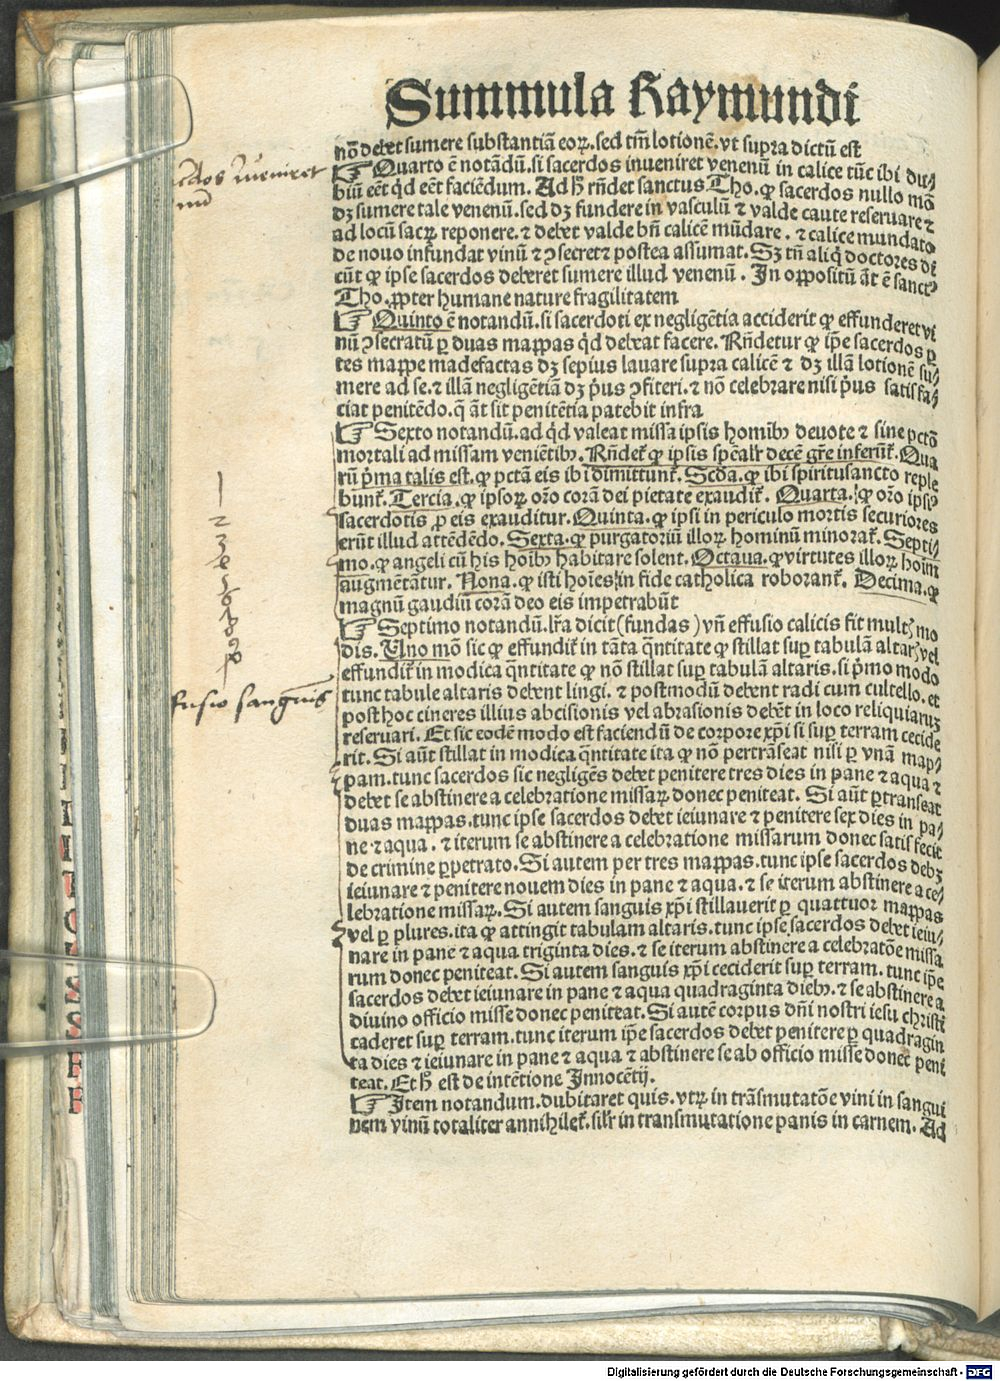 Summula Raymundi
nō debet sumere substantiā eoꝝ. sed tm̄ lotionē. vt supra dictū est
☞ Quarto ē notādū. si sacerdos inueniret venenū in calice tūc ibi du⸗
biū eēt qd̓ eēt faciēdum. Ad ħ rn̄det sanctus Tho. ꝙ sacerdos nullo mō
dꝫ sumere tale venenū. sed dꝫ fundere in vasculū ⁊ valde caute reseruare ⁊
ad locū sacꝝ reponere. ⁊ debet valde bn̄ calicē mūdare. ⁊ calice mundato
de nouo infundat vinū ⁊ ꝯsecret ⁊ postea assumat. Sꝫ tn̄ aliq̇ doctores di
cūt ꝙ ipse sacerdos deberet sumere illud venenū. In oppositū āt ē sanctꝰ
Tho. ꝓpter humane nature fragilitatem
☞ Quinto ē notandū. si sacerdoti ex negligētia acciderit ꝙ effunderet vi
nū ꝯsecratū ꝑ duas mappas qd̓ debeat facere. Rn̄detur ꝙ ip̄e sacerdos ꝑ
tes mappe madefactas dꝫ sepius lauare supra calicē ⁊ dꝫ illā lotionē su⸗
mere ad se. ⁊ illā negligētiā dꝫ pͥus ꝯfiteri. ⁊ nō celebrare nisi pͥus satisfa⸗
ciat penitēdo. q̄ āt sit penitētia patebit infra
☞ Sexto notandū. ad qd̓ valeat missa ipsis homībꝫ deuote ⁊ sine pctō
mortali ad missam veniētibꝫ. Rn̄det̄ ꝙ ipsis sp̄ealr̄ decē gr̄e inferūt̄. Qua
rū pͥma talis est. ꝙ pctā eis ibi dimittunt̄. Scd̄a. ꝙ ibi spiritusancto reple
bunt̄. Tercia. ꝙ ipsoꝝ or̄o corā dei pietate exaudit̄. Quarta. ꝙ or̄o ipsiꝰ
sacerdotis ꝓ eis exauditur. Quinta. ꝙ ipsi in periculo mortis securiores
erūt illud attēdēdo. Sexta. ꝙ purgatoriū illoꝝ hominū minorat̄. Septi⸗
mo. ꝙ angeli cū his hoībꝫ habitare solent. Octaua. ꝙ virtutes illoꝝ hoīm
augmētātur. Nona. ꝙ isti hoīes in fide catholica roborant̄. Decima. ꝙ
magnū gaudiū corā deo eis impetrabūt
☞ Septimo notandū. lr̄a dicit (fundas) vn̄ effusio calicis fit multꝭ mo
dis. Uno mō sic ꝙ effundit̄ in tāta q̄ntitate ꝙ stillat suꝑ tabulā altarꝭ vel
effundit̄ in modica q̄ntitate ꝙ nō stillat suꝑ tabulā altaris. si pͥmo modo
tunc tabule altaris debent lingi. ⁊ postmodū debent radi cum cultello. et
post hoc cineres illius abcisionis vel abrasionis debēt in loco reliquiaruꝫ
reseruari. Et sic eodē modo est faciendū de corpore xp̄i si suꝑ terram cecide
rit. Si aūt stillat in modica q̄ntitate ita ꝙ nō pertrāseat nisi ꝑ vnā map⸗
pam. tunc sacerdos sic negligēs debet penitere tres dies in pane ⁊ aqua ⁊
debet se abstinere a celebratione missaꝝ donec peniteat. Si aūt ꝑtranseat
duas mappas. tunc ipse sacerdos debet ieiunare ⁊ penitere sex dies in pa⸗
ne ⁊ aqua. ⁊ iterum se abstinere a celebratione missarum donec satisfecit
de crimine ꝑpetrato. Si autem per tres mappas. tunc ipse sacerdos debꝫ
ieiunare ⁊ penitere nouem dies in pane ⁊ aqua. ⁊ se iterum abstinere a ce⸗
lebratione missaꝝ. Si autem sanguis xp̄i stillauerit ꝑ quattuor mappas
vel ꝑ plures. ita ꝙ attingit tabulam altaris. tunc ipse sacerdos debet ieiu⸗
nare in pane ⁊ aqua triginta dies. ⁊ se iterum abstinere a celebratōe missa
rum donec peniteat. Si autem sanguis xp̄i ceciderit suꝑ terram. tunc ip̄e
sacerdos debet ieiunare in pane ⁊ aqua quadraginta diebꝫ. ⁊ se abstinere a
diuino officio misse donec peniteat. Si autē corpus dn̄i nostri iesu christi
caderet suꝑ terram. tunc iterum ip̄e sacerdos debet penitere ꝑ quadragin
ta dies ⁊ ieiunare in pane ⁊ aqua ⁊ abstinere se ab officio misse donec peni
teat. Et ħ est de intētione Innocētij.
☞ Item notandum. dubitaret quis. vtꝝ in trāsmutatōe vini in sangui
nem vinū totaliter annihilet̄. silr̄ in transmutatione panis in carnem. Ad
inueniret
1
2
3
fusio sanguis
Digitalisierung gefördert durch die Deutsche Forschungsgemeinschaft - DFG